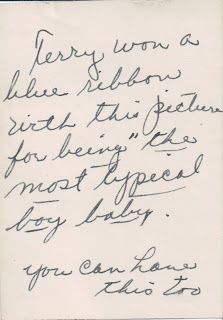 Terry won a
blue ribbon
with this picture
for being "the
most typical
boy baby.
you can have
this too